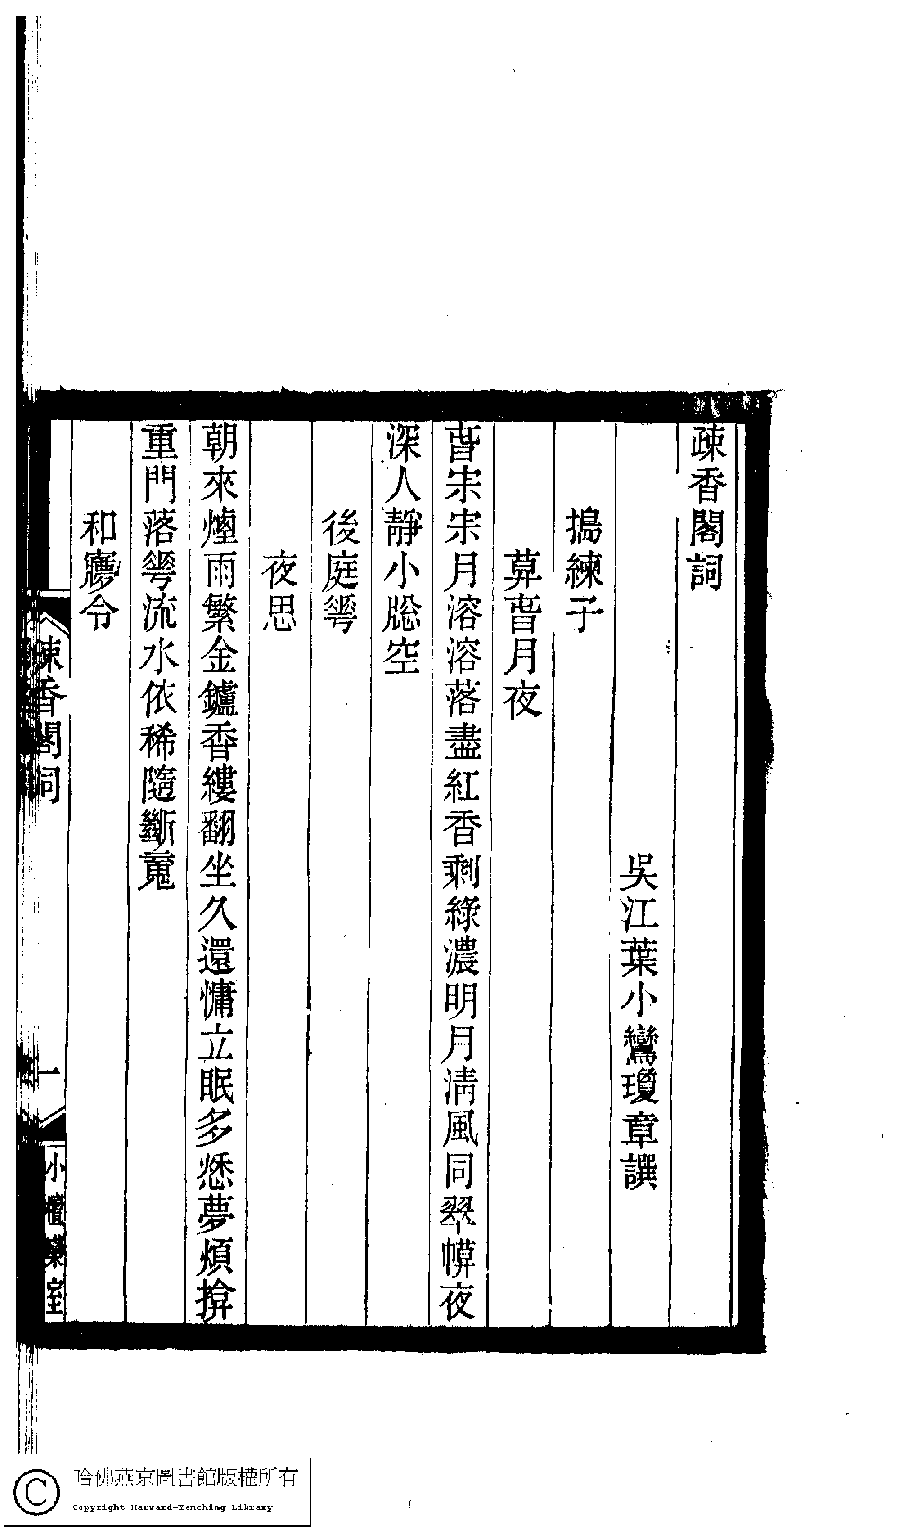 疎香閣詞
吳江葉小鸞瓊章譔
搗練子
萛旾月夜
旾宋宋月溶溶落盡紅香剩綠濃明月淸風同翠幙夜
深人靜小牎空
後庭蕚
夜思
朝來煙雨繁金鑪香縷翻坐久還慵立眠多愁夢煩揜
重門落蕚流水依稀隨斷䰟
和㝱令
疎香閣詞
一
小檀欒室
哈佛燕京圖書館版權所有
Copyright Harvard-Yenching Library